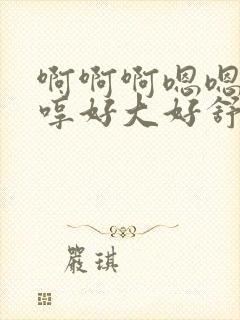 啊啊啊嗯嗯
哼好大好舒
严琪